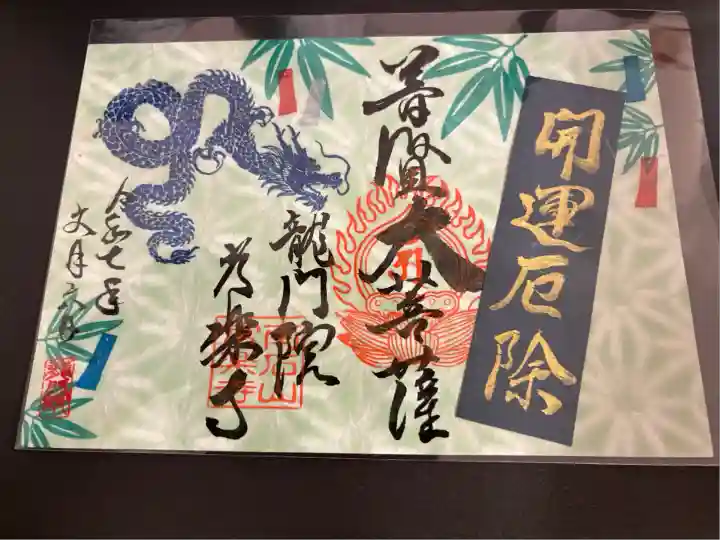 開運厄除
普賢大菩薩
龍門院
常楽寺
令和七年
文月六日